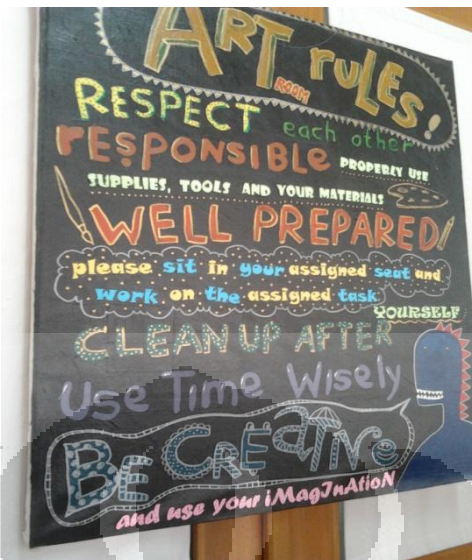 ART rULES!
ROOM
RESPECT each other
rESPONSIBLE PROPERLY USE
SUPPLIES, TOOLS AND YOUR MATERIALS
WELL PREPARED
please sit in your assigned seat and
work on the assigned task
CLEAN UP AFTER YOURSELF
Use Time Wisely
BE CREATIVE
and use your iMagInAtioN